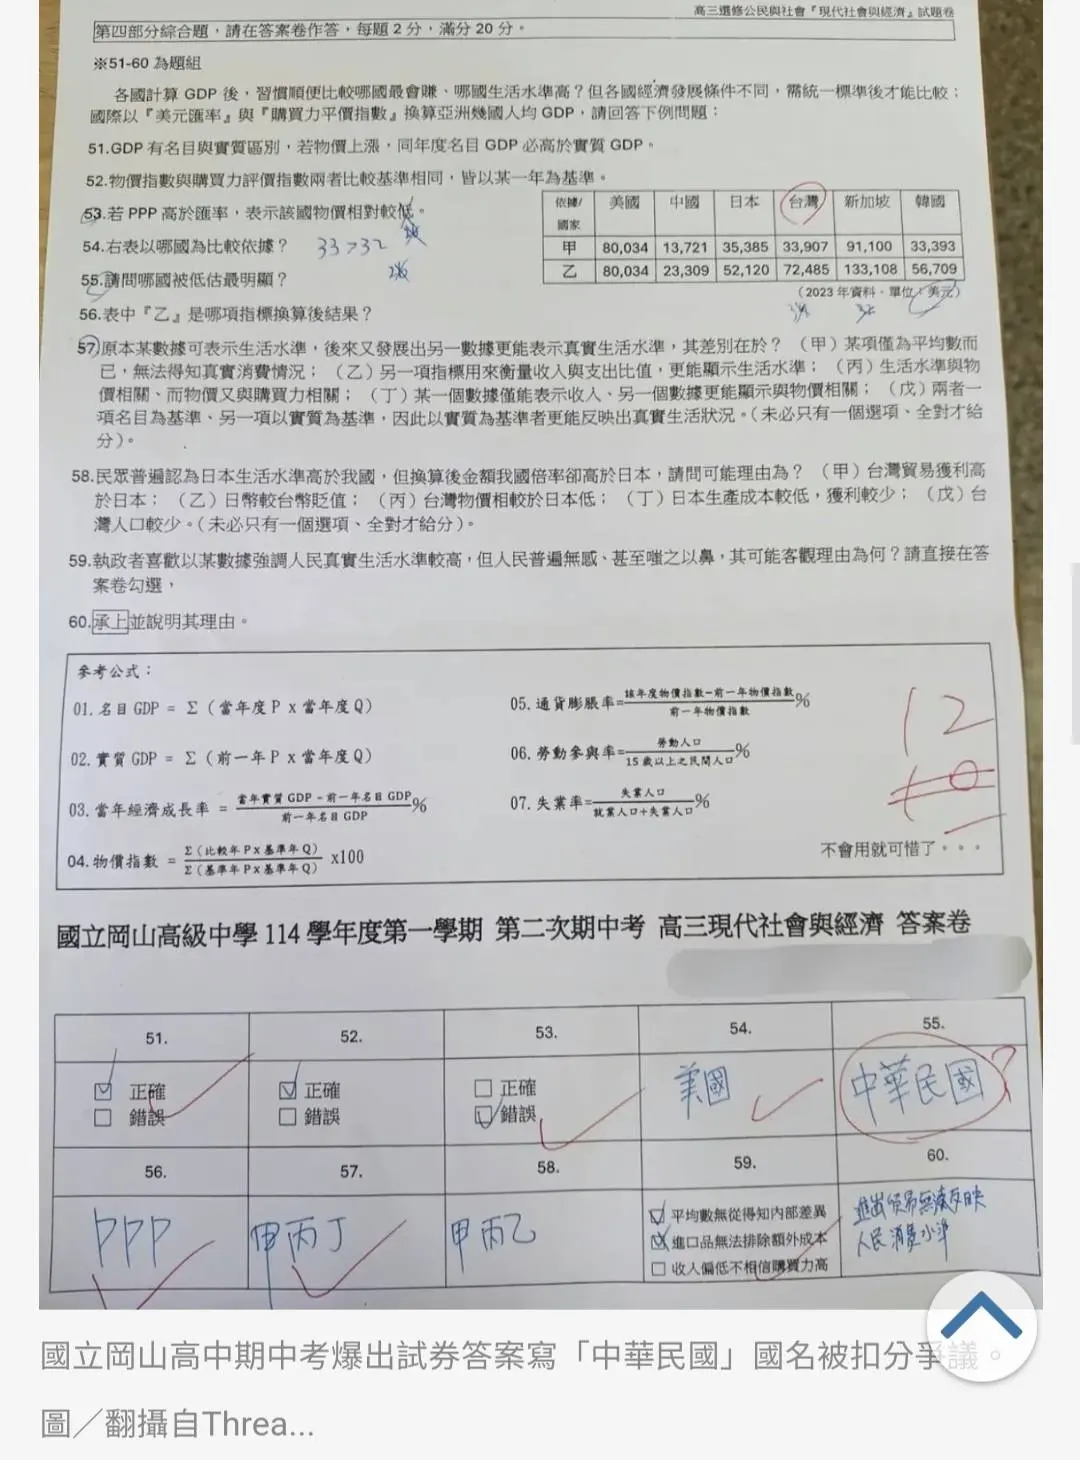 高三選修公民與社會『現代社會與經濟』試題卷
第四部分綜合題，請在答案卷作答，每題 2 分，滿分 20 分。
※51-60 為題組
各國計算 GDP 後，習慣順便比較哪國最會賺、哪國生活水準高？但各國經濟發展條件不同，需統一標準後才能比較；
國際以『美元匯率』與『購買力平價指數』換算亞洲幾國人均 GDP，請回答下例問題：
51.GDP 有名目與實質區別，若物價上漲，同年度名目 GDP 必高於實質 GDP。
52.物價指數與購買力評價指數兩者比較基準相同，皆以某一年為基準。
53.若 PPP 高於匯率，表示該國物價相對較低。
54.右表以哪國為比較依據？
33>32
55.請問哪國被低估最明顯？
依據/國家 美國 中國 日本 台灣 新加坡 韓國
甲 80,034 13,721 35,385 33,907 91,100 33,393
乙 80,034 23,309 52,120 72,485 133,108 56,709
（2023 年資料，單位：美元）
56.表中『乙』是哪項指標換算後結果？
57.原本某數據可表示生活水準，後來又發展出另一數據更能表示真實生活水準，其差別在於？（甲）某項僅為平均數而
已，無法得知真實消費情況；（乙）另一項指標用來衡量收入與支出比值，更能顯示生活水準；（丙）生活水準與物
價相關、而物價又與購買力相關；（丁）某一個數據僅能表示收入、另一個數據更能顯示與物價相關；（戊）兩者一
項名目為基準、另一項以實質為基準，因此以實質為基準者更能反映出真實生活狀況。（未必只有一個選項、全對才給
分）。
58.民眾普遍認為日本生活水準高於我國，但換算後金額我國倍率卻高於日本，請問可能理由為？（甲）台灣貿易獲利高
於日本；（乙）日幣較台幣貶值；（丙）台灣物價相較於日本低；（丁）日本生產成本較低，獲利較少；（戊）台
灣人口較少。（未必只有一個選項、全對才給分）。
59.執政者喜歡以某數據強調人民真實生活水準較高，但人民普遍無感、甚至嗤之以鼻，其可能客觀理由為何？請直接在答
案卷勾選，
60.承上並說明其理由。
參考公式：
01. 名目 GDP = Σ（當年度 P x 當年度 Q）
02. 實質 GDP = Σ（前一年 P x 當年度 Q）
03. 當年經濟成長率 = 當年實質 GDP－前一年名目 GDP/前一年名目 GDP%
04. 物價指數 = Σ（比較年 P x 基準年 Q）/Σ（基準年 P x 基準年 Q） x100
05. 通貨膨脹率=該年度物價指數－前一年物價指數/前一年物價指數%
06. 勞動參與率=勞動人口/15 歲以上之民間人口%
07. 失業率=失業人口/就業人口+失業人口%
12
不會用就可惜了。。。
國立岡山高級中學 114 學年度第一學期 第二次期中考 高三現代社會與經濟 答案卷
51. 52. 53. 54. 55.
正確 正確 正確 美國 中華民國?
錯誤 錯誤 錯誤
56. 57. 58. 59. 60.
PPP 甲丙丁 甲丙乙
平均數無從得知內部差異
進口品無法排除額外成本
收入偏低不相信購買力高
進出貿易無法反映
人民消費水準
國立岡山高中期中考爆出試券答案寫「中華民國」國名被扣分爭議。
圖／翻攝自Threa...